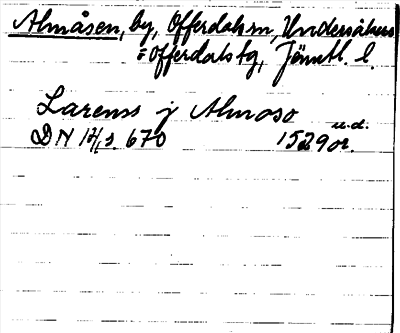 Almåsen, by, Offerdals sn, Undersåkers
o Offerdals tg, Jämtl. l.
Larens j Almoso
DN 14/1 s. 670 1529 u.d. or.